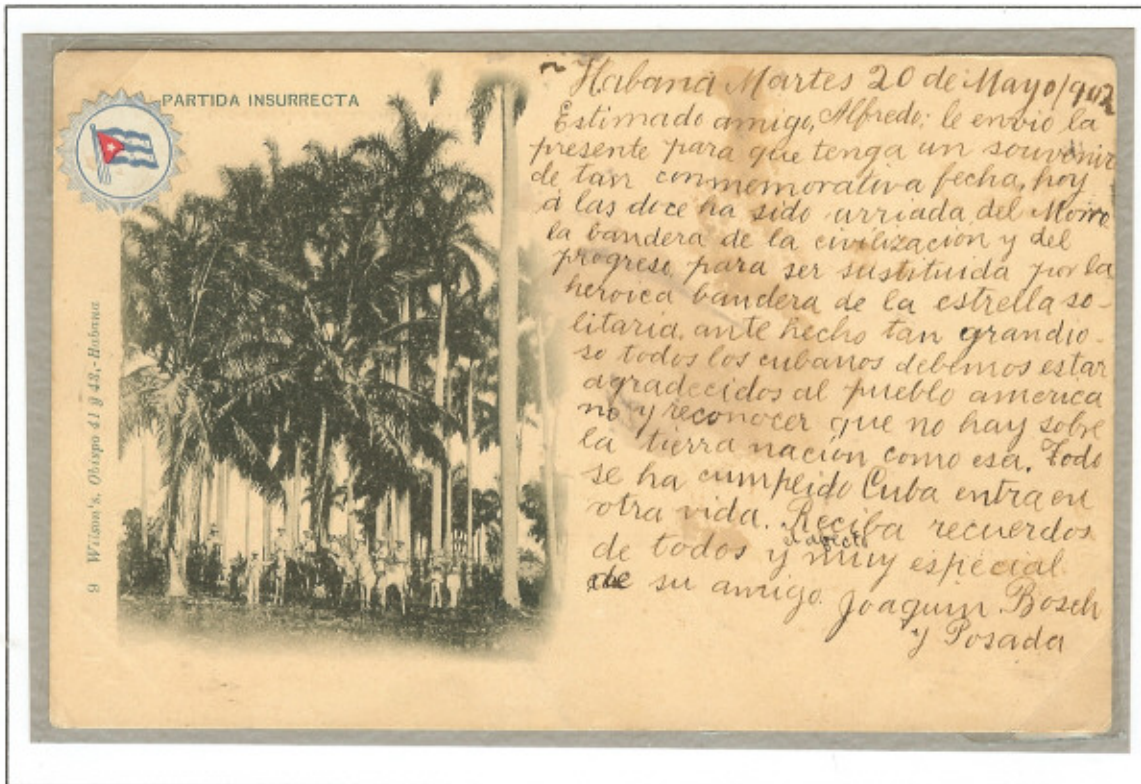 PARTIDA INSURRECTA
9 Wilson's. Obispo 41 y 43,-Habana
Habana Martes 20 de Mayo/902
Estimado amigo, Alfredo: le envio la
presente para que tenga un souvenir
de tan conmemorativa fecha, hoy
á las doce ha sido arriada del Morro
la bandera de la civilización y del
progreso, para ser sustituida por la
heroica bandera de la estrella so-
litaria, ante hecho tan grandio-
so todos los cubanos debemos estar
agradecidos al pueblo america
no y reconocer que no hay sobre
la tierra nación como esa. Todo
se ha cumpeido Cuba entra en
otra vida. Reciba recuerdos
de todos y muy especial
de su amigo. Joaquin Bosch
y Posada